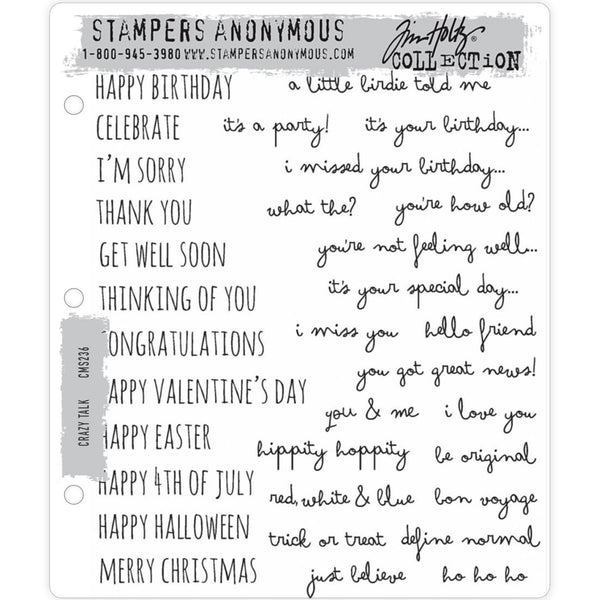 STAMPERS ANONYMOUS
1-800-945-3980 WWW.STAMPERSANONYMOUS.COM
Tim Holtz
COLLECTION
HAPPY BIRTHDAY a little birdie told me
CELEBRATE it's a party! it's your birthday...
I'M SORRY i missed your birthday...
THANK YOU what the? you're how old?
GET WELL SOON you're not feeling well...
THINKING OF YOU it's your special day...
CONGRATULATIONS i miss you hello friend
HAPPY VALENTINE'S DAY you got great news!
you & me i love you
HAPPY EASTER hippity hoppity be original
HAPPY 4TH OF JULY red, white & blue bon voyage
HAPPY HALLOWEEN trick or treat define normal
MERRY CHRISTMAS just believe ho ho ho
CRAZY TALK CMS236